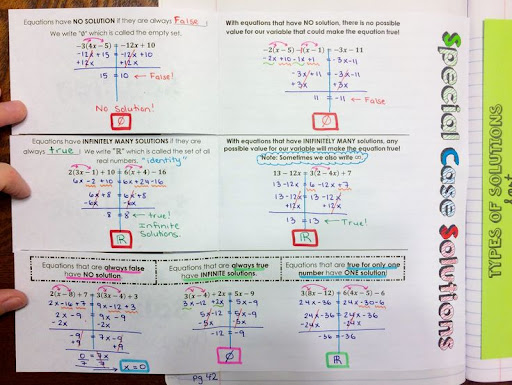 Equations have NO SOLUTION if they are always False.
We write "∅" which is called the empty set.
-3(4x - 5) = -12x + 10
-12x + 15 = -12x + 10
+12x +12x
15 = 10 ← False!
No Solution!
∅
With equations that have NO solution, there is no possible
value for our variable that could make the equation true!
-2(x - 5) - (x - 1) = -3x - 11
-2x + 10 - 1x + 1 = -3x - 11
-3x + 11 = -3x - 11
+3x +3x
11 = -11 ← False
∅
Equations have INFINITELY MANY SOLUTIONS if they are
always true. We write "ℝ" which is called the set of all
real numbers. "identity"
2(3x - 1) + 10 = 6(x + 4) - 16
6x - 2 + 10 = 6x + 24 - 16
6x + 8 = 6x + 8
-6x -6x
8 = 8 ← true!
Infinite
Solutions.
ℝ
With equations that have INFINITELY MANY solutions, any
possible value for our variable will make the equation true!
*Note: Sometimes we also write ∞
13 - 12x = 3(2 - 4x) + 7
13 - 12x = 6 - 12x + 7
13 - 12x = 13 - 12x
+12x +12x
13 = 13 ← True!
ℝ
Equations that are always false
have NO solution.
Equations that are always true
have INFINITE solutions.
Equations that are true for only one
number have ONE solution!
2(x - 8) + 7 = 3(3x - 4) + 3
2x - 16 + 7 = 9x - 12 + 3
2x - 9 = 9x - 9
-2x -2x
-9 = 7x - 9
+9 +9
0 = 7x
7 7
x = 0
3(x - 4) + 2x = 5x - 9
3x - 12 + 2x = 5x - 9
5x - 12 = 5x - 9
-5x -5x
-12 = -9
∅
3(8x - 12) = 6(4x - 5) - 6
24x - 36 = 24x - 30 - 6
24x - 36 = 24x - 36
-24x -24x
-36 = -36
ℝ
Special Case Solutions
TYPES OF SOLUTIONS
pg. 42